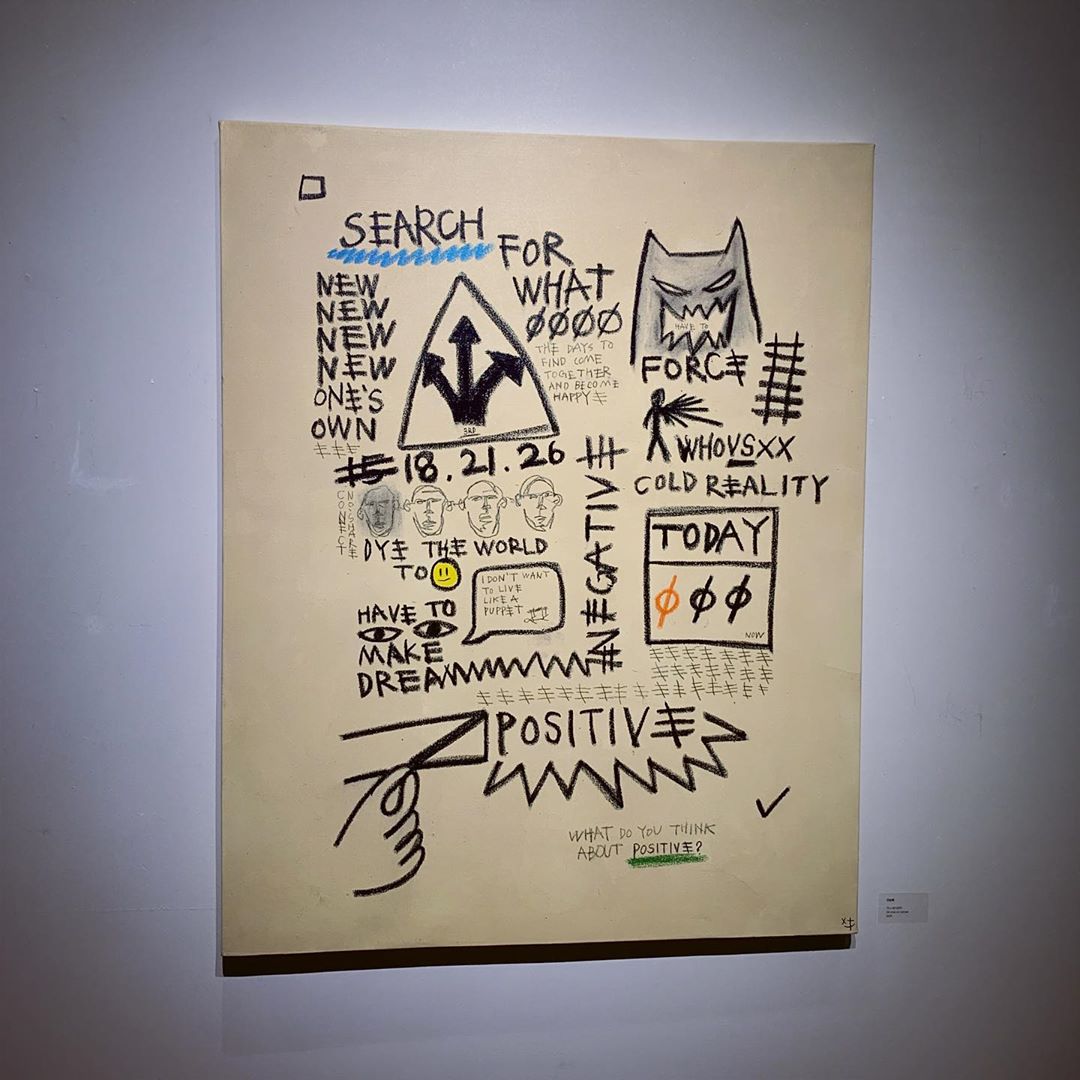 SEARCH
FOR
WHAT
ØØØØ
THE DAYS TO
FIND COME
TOGETHER
AND BECOME
HAPPY
NEW
NEW
NEW
NEW
ONE'S
OWN
3RD
HAVE TO
FORCE
WHOVSXX
COLD REALITY
15 18.21.26
CONNECT
NOSHARE
DYE THE WORLD
TO
I DON'T WANT
TO LIVE
LIKE A
PUPPET
HAVE TO
MAKE
DREAM
NEGATIVE
TODAY
ØØØ
NOW
POSITIVE
WHAT DO YOU THINK
ABOUT POSITIVE?